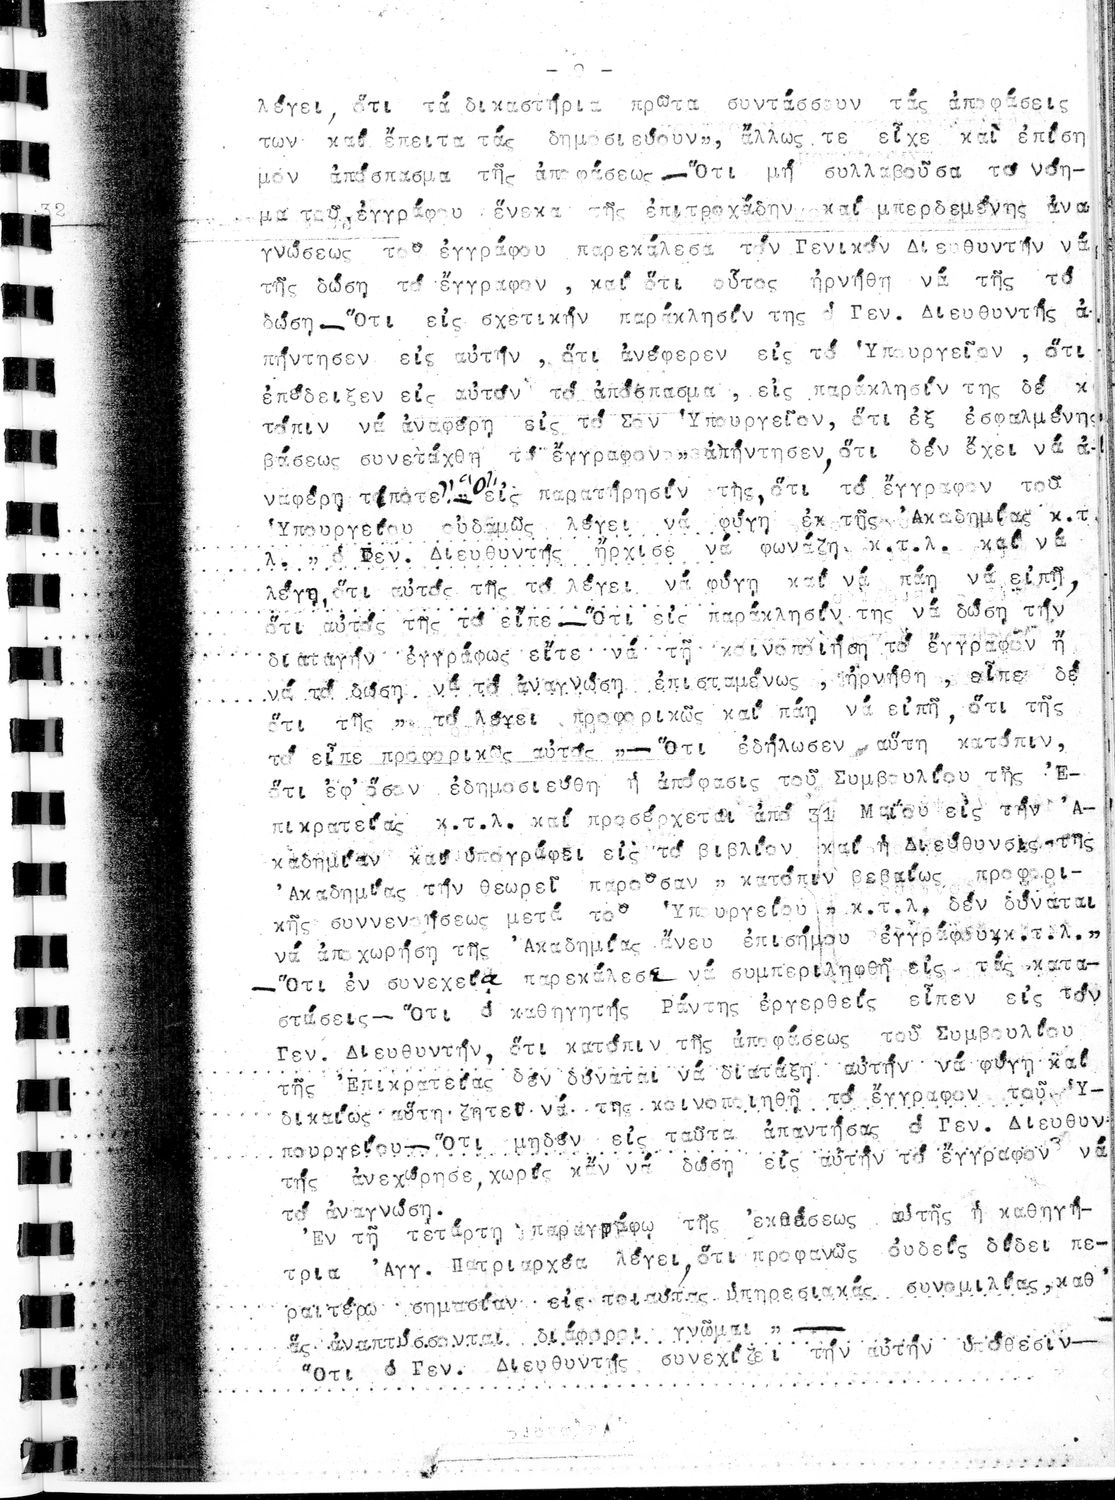 λέγει, ὅτι τά δικαστήρια πρῶτα συντάσσουν τάς ἀποφάσεις
των καί ἔπειτα τάς δημοσιεύουν", ἄλλως τε εἶχε καί ἐπίση
μον ἀπόσπασμα τῆς ἀποφάσεως — Ὅτι μή συλλαβοῦσα τό νόη-
32
μα τοῦ ἐγγράφου ἕνεκα τῆς ἐπιτροχάδην καί μπερδεμένης ἀνα
γνώσεως τοῦ ἐγγράφου παρεκάλεσα τόν Γενικόν Διευθυντήν νά
τῆς δώση τό ἔγγραφον , καί ὅτι οὗτος ἠρνήθη νά τῆς τό
δώση — Ὅτι εἰς σχετικήν παράκλησίν της ὁ Γεν. Διευθυντής ἀ-
πήντησεν εἰς αὐτήν , ὅτι ἀνέφερεν εἰς τό Ὑπουργεῖον , ὅτι
ἐπέδειξεν εἰς αὐτόν τό ἀπόσπασμα , εἰς παράκλησίν της δέ κ
τόπιν νά ἀναφέρη εἰς τό Σον Ὑπουργεῖον, ὅτι ἐξ ἐσφαλμένης
βάσεως συνετάχθη τό ἔγγραφον " ἀπήντησεν, ὅτι δέν ἔχει νά ἀ-
ναφέρη τίποτε" εἰς παρατήρησίν τῆς, ὅτι τό ἔγγραφον τοῦ
Ὑπουργείου οὐδαμῶς λέγει νά φύγη ἐκ τῆς Ἀκαδημίας κ.τ.
λ. " ὁ Γεν. Διευθυντής ἤρχισε νά φωνάζη κ.τ.λ. καί νά
λέγη, ὅτι αὐτός τῆς τό λέγει νά φύγη καί νά πάη νά εἰπῆ,
ὅτι αὐτός τῆς τό εἶπε — Ὅτι εἰς παράκλησίν της νά δώση τήν
διαταγήν ἐγγράφως εἴτε νά τῆ κοινοποιήση τό ἔγγραφον ἤ
νά τό δώση νά τό ἀναγνώση ἐπισταμένως , ἠρνήθη , εἶπε δέ
ὅτι τῆς " τό λέγει προφορικῶς καί πάη νά εἰπῆ, ὅτι τῆς
τό εἶπε προφορικῶς αὐτός " — Ὅτι ἐδήλωσεν αὕτη κατόπιν,
ὅτι ἐφ' ὅσον ἐδημοσιεύθη ἡ ἀπόφασις τοῦ Συμβουλίου τῆς Ἐ-
πικρατείας κ.τ.λ. καί προσέρχεται ἀπό 31 Μαΐου εἰς τήν Ἀ-
καδημίαν καί ὑπογράφει εἰς τό βιβλίον καί ἡ Διεύθυνσις τῆς
Ἀκαδημίας τήν θεωρεῖ παροῦσαν " κατόπιν βεβαίως προφορι-
κῆς συννενοήσεως μετά τοῦ Ὑπουργείου " κ.τ.λ. δέν δύναται
νά ἀποχωρήση τῆς Ἀκαδημίας ἄνευ ἐπισήμου ἐγγράφου κ.τ.λ."
— Ὅτι ἐν συνεχεία παρεκάλεσε νά συμπεριληφθῆ εἰς τάς κατα-
στάσεις — Ὅτι ὁ καθηγητής Ράντης ἐργερθείς εἶπεν εἰς τόν
Γεν. Διευθυντήν, ὅτι κατόπιν τῆς ἀποφάσεως τοῦ Συμβουλίου
τῆς Ἐπικρατείας δέν δύναται νά διατάξη αὐτήν νά φύγη καί
δικαίως αὕτη ζητεῖ νά τῆς κοινοποιηθῆ τό ἔγγραφον τοῦ Ὑ-
πουργείου — Ὅτι μηδέν εἰς ταῦτα ἀπαντήσας ὁ Γεν. Διευθυν-
τής ἀνεχώρησε, χωρίς κἄν νά δώση εἰς αὐτήν τό ἔγγραφον νά
τό ἀναγνώση.
Ἐν τῆ τετάρτη παραγράφῳ τῆς ἐκθέσεως αὐτῆς ἡ καθηγή-
τρια Ἀγγ. Πατριαρχέα λέγει, ὅτι προφανῶς οὐδείς δίδει πε-
ραιτέρω σημασίαν εἰς τοιαύτας ὑπηρεσιακάς συνομιλίας, καθ'
ἅς ἀναπτύσσονται διάφοροι γνῶμαι " —
Ὅτι ὁ Γεν. Διευθυντής συνεχίζει τήν αὐτήν ὑπόθεσιν —